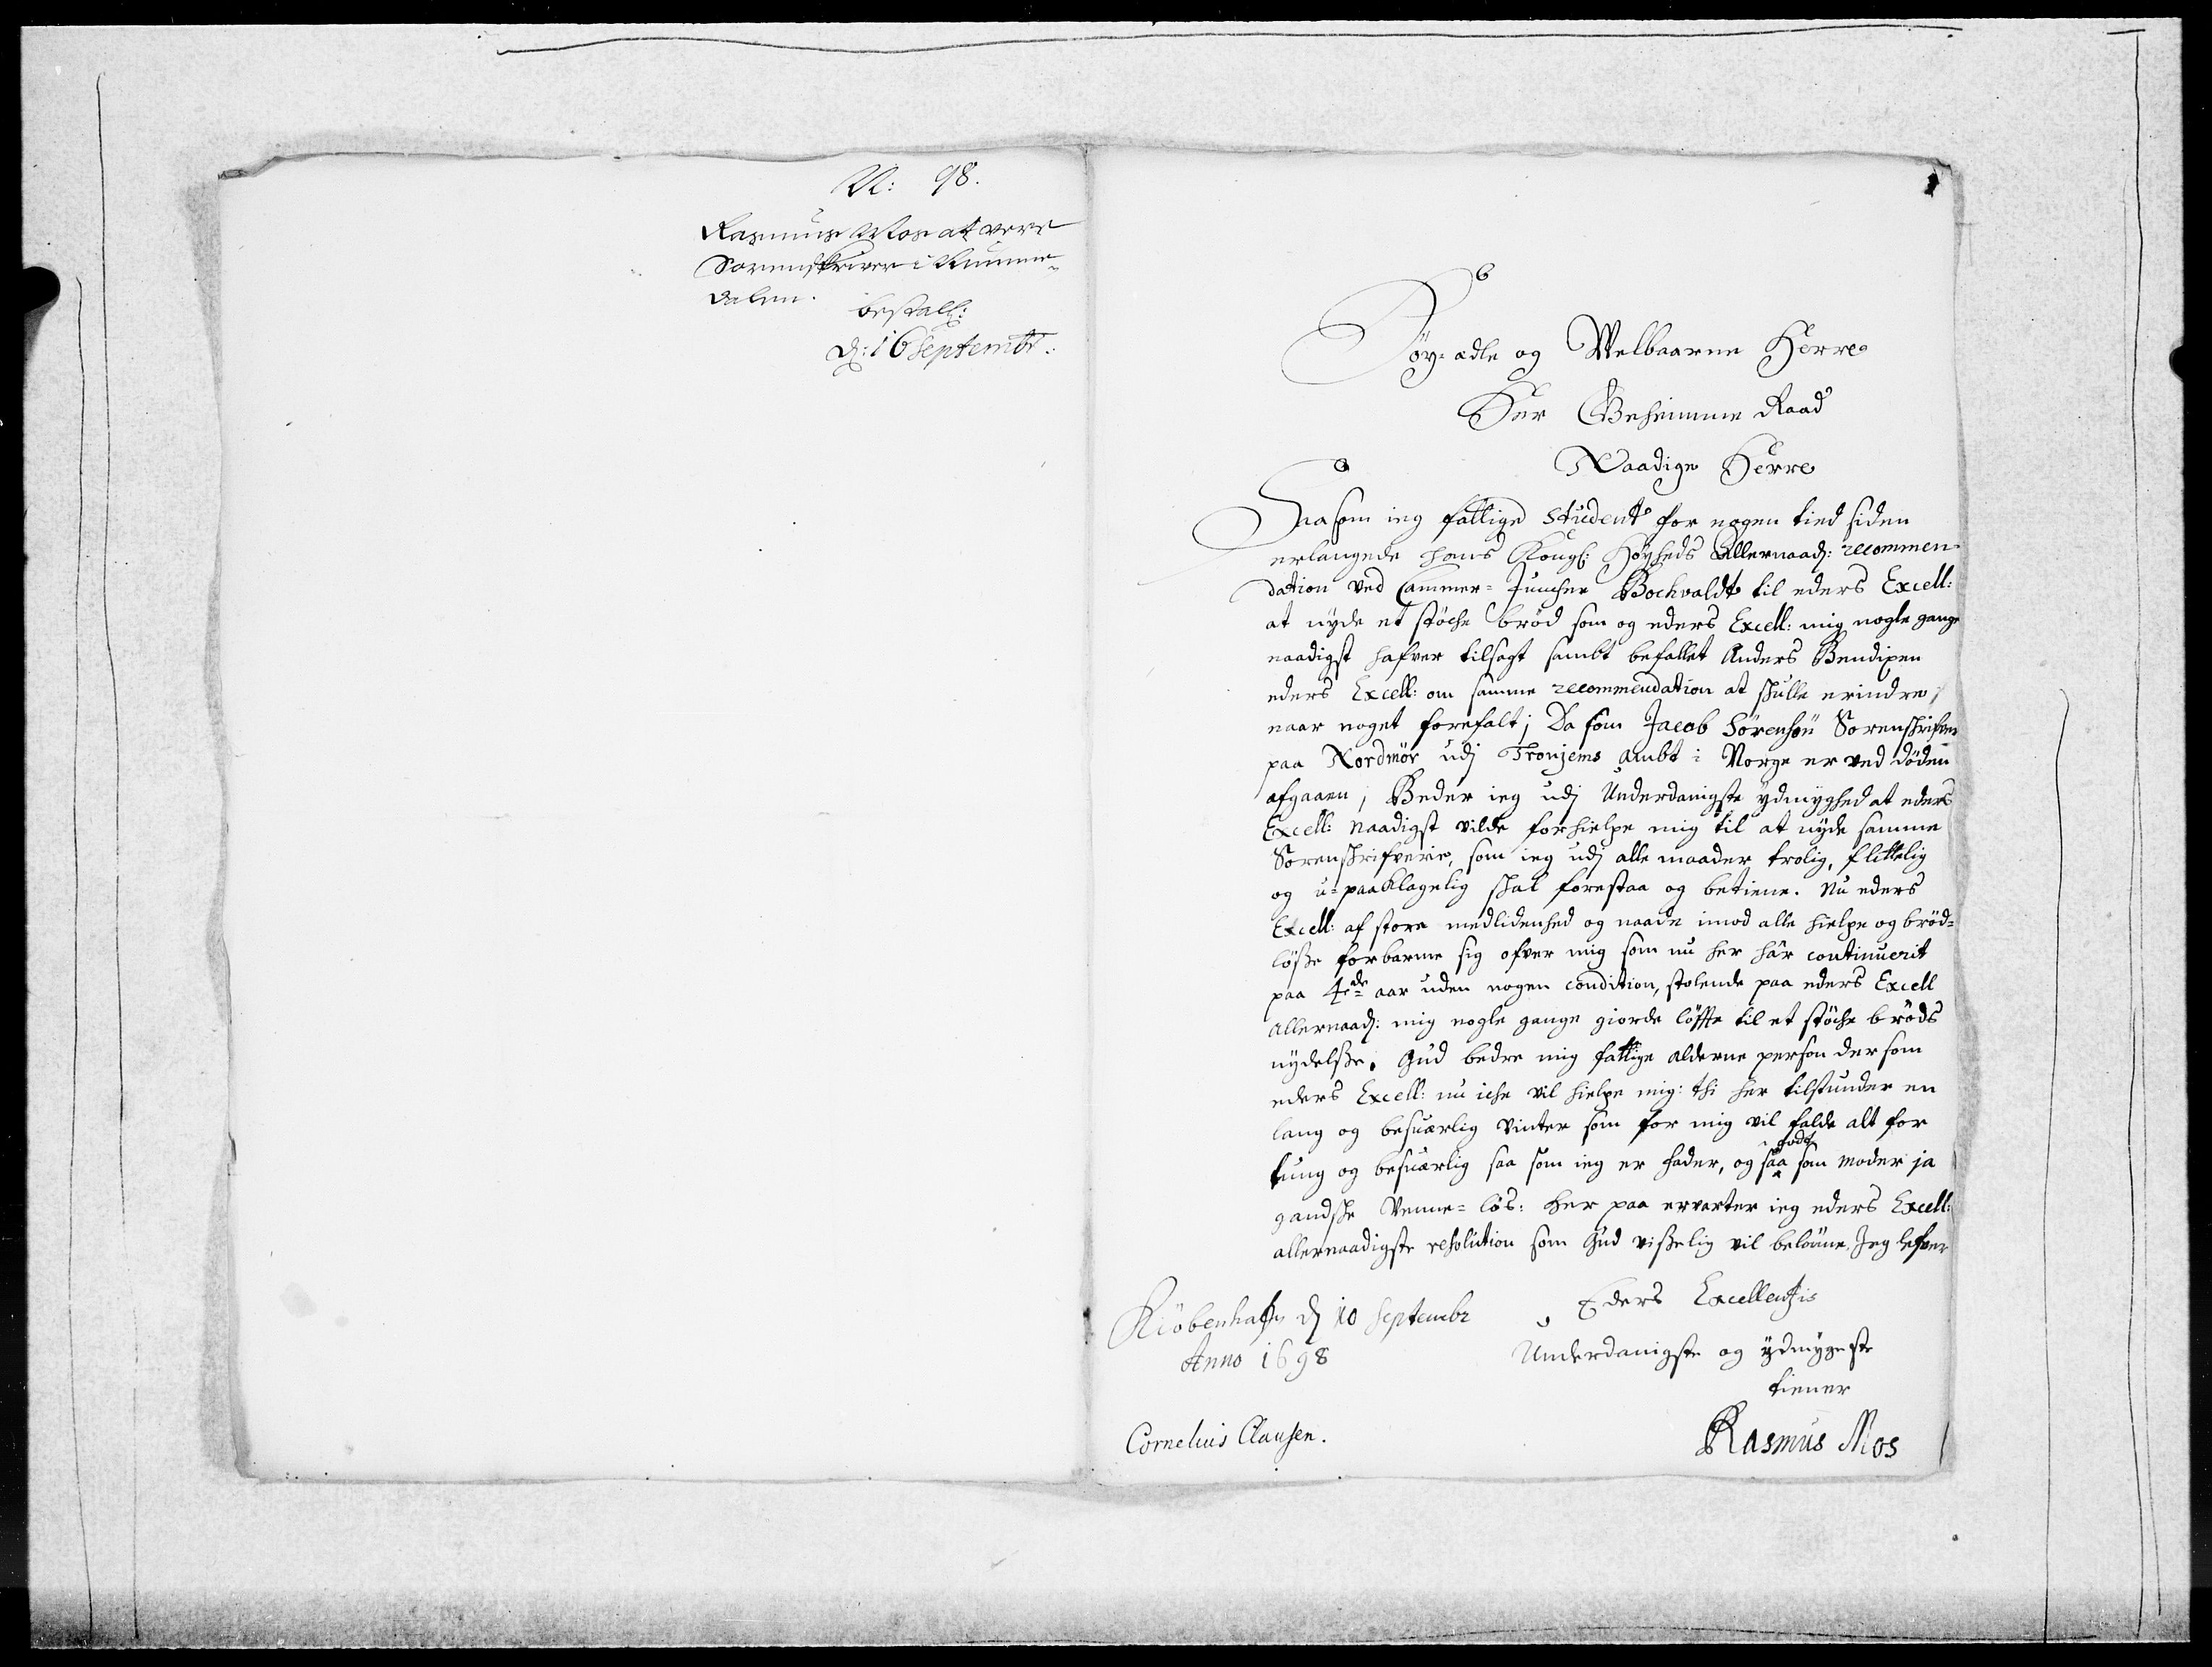 N: 98.
Rasmus Mos at være
Sorenskriver i Numme-
dalen.
bestall:
d: 16 Septembr:
Høy-ædle og Welbaarne Herre
Her Geheimme Raad
Naadige Herre
Saasom ieg fattige Student for nogen tied siden
erlangede hans Kongl: Høyheds Allernaad: recommen-
dation ved Cammer-Juncher Bochvaldt til eders Excell:
at nyde et støche brød som og eders Excell: mig nogle gange
naadigst hafver tilsagt sambt befallet Anders Bendixen
eders Excell: om samme recommendation at skulle erindre,
naar noget forefalt; Da som Jacob Sørensøn Sorenskrifver
paa Nordmør udj Tronjems Ambt i Norge er ved døden
afgaaen; Beder ieg udj Underdanigste ydmyghed at eders
Excell: Naadigst vilde forhielpe mig til at nyde samme
Sorenskrifverie, som ieg udj alle maader trolig, flittelig
og u-paaklagelig skal forestaa og betiene. Nu eders
Excell: af store medlidenhed og naade imod alle hielpe og brød-
løsse forbarme sig ofver mig som nu her hâr continuerit
paa 4de aar uden nogen condition, stolende paa eders Excell
Allernaad: mig nogle gange giorde løffte til et støche brøds
nydelsse. Gud bedre mig fattige alderne person der som
eders Excell: nu iche vil hielpe mig: thi her tilstunder en
lang og besuærlig Vinter som for mig vil falde alt for
tung og besuærlig saa som ieg er fader, og saa godt som moder ja
gandske Venne-løs: Her paa ervarter ieg eders Excell:
allernaadigste resolution som Gud visselig vil beløune, Jeg lefver
Kiøbenhafn d 10 Septembr
Anno 1698
Eders Excellentzis
Underdanigste og ydmygeste
tiener
Rasmus Mos
Cornelius Clausen.